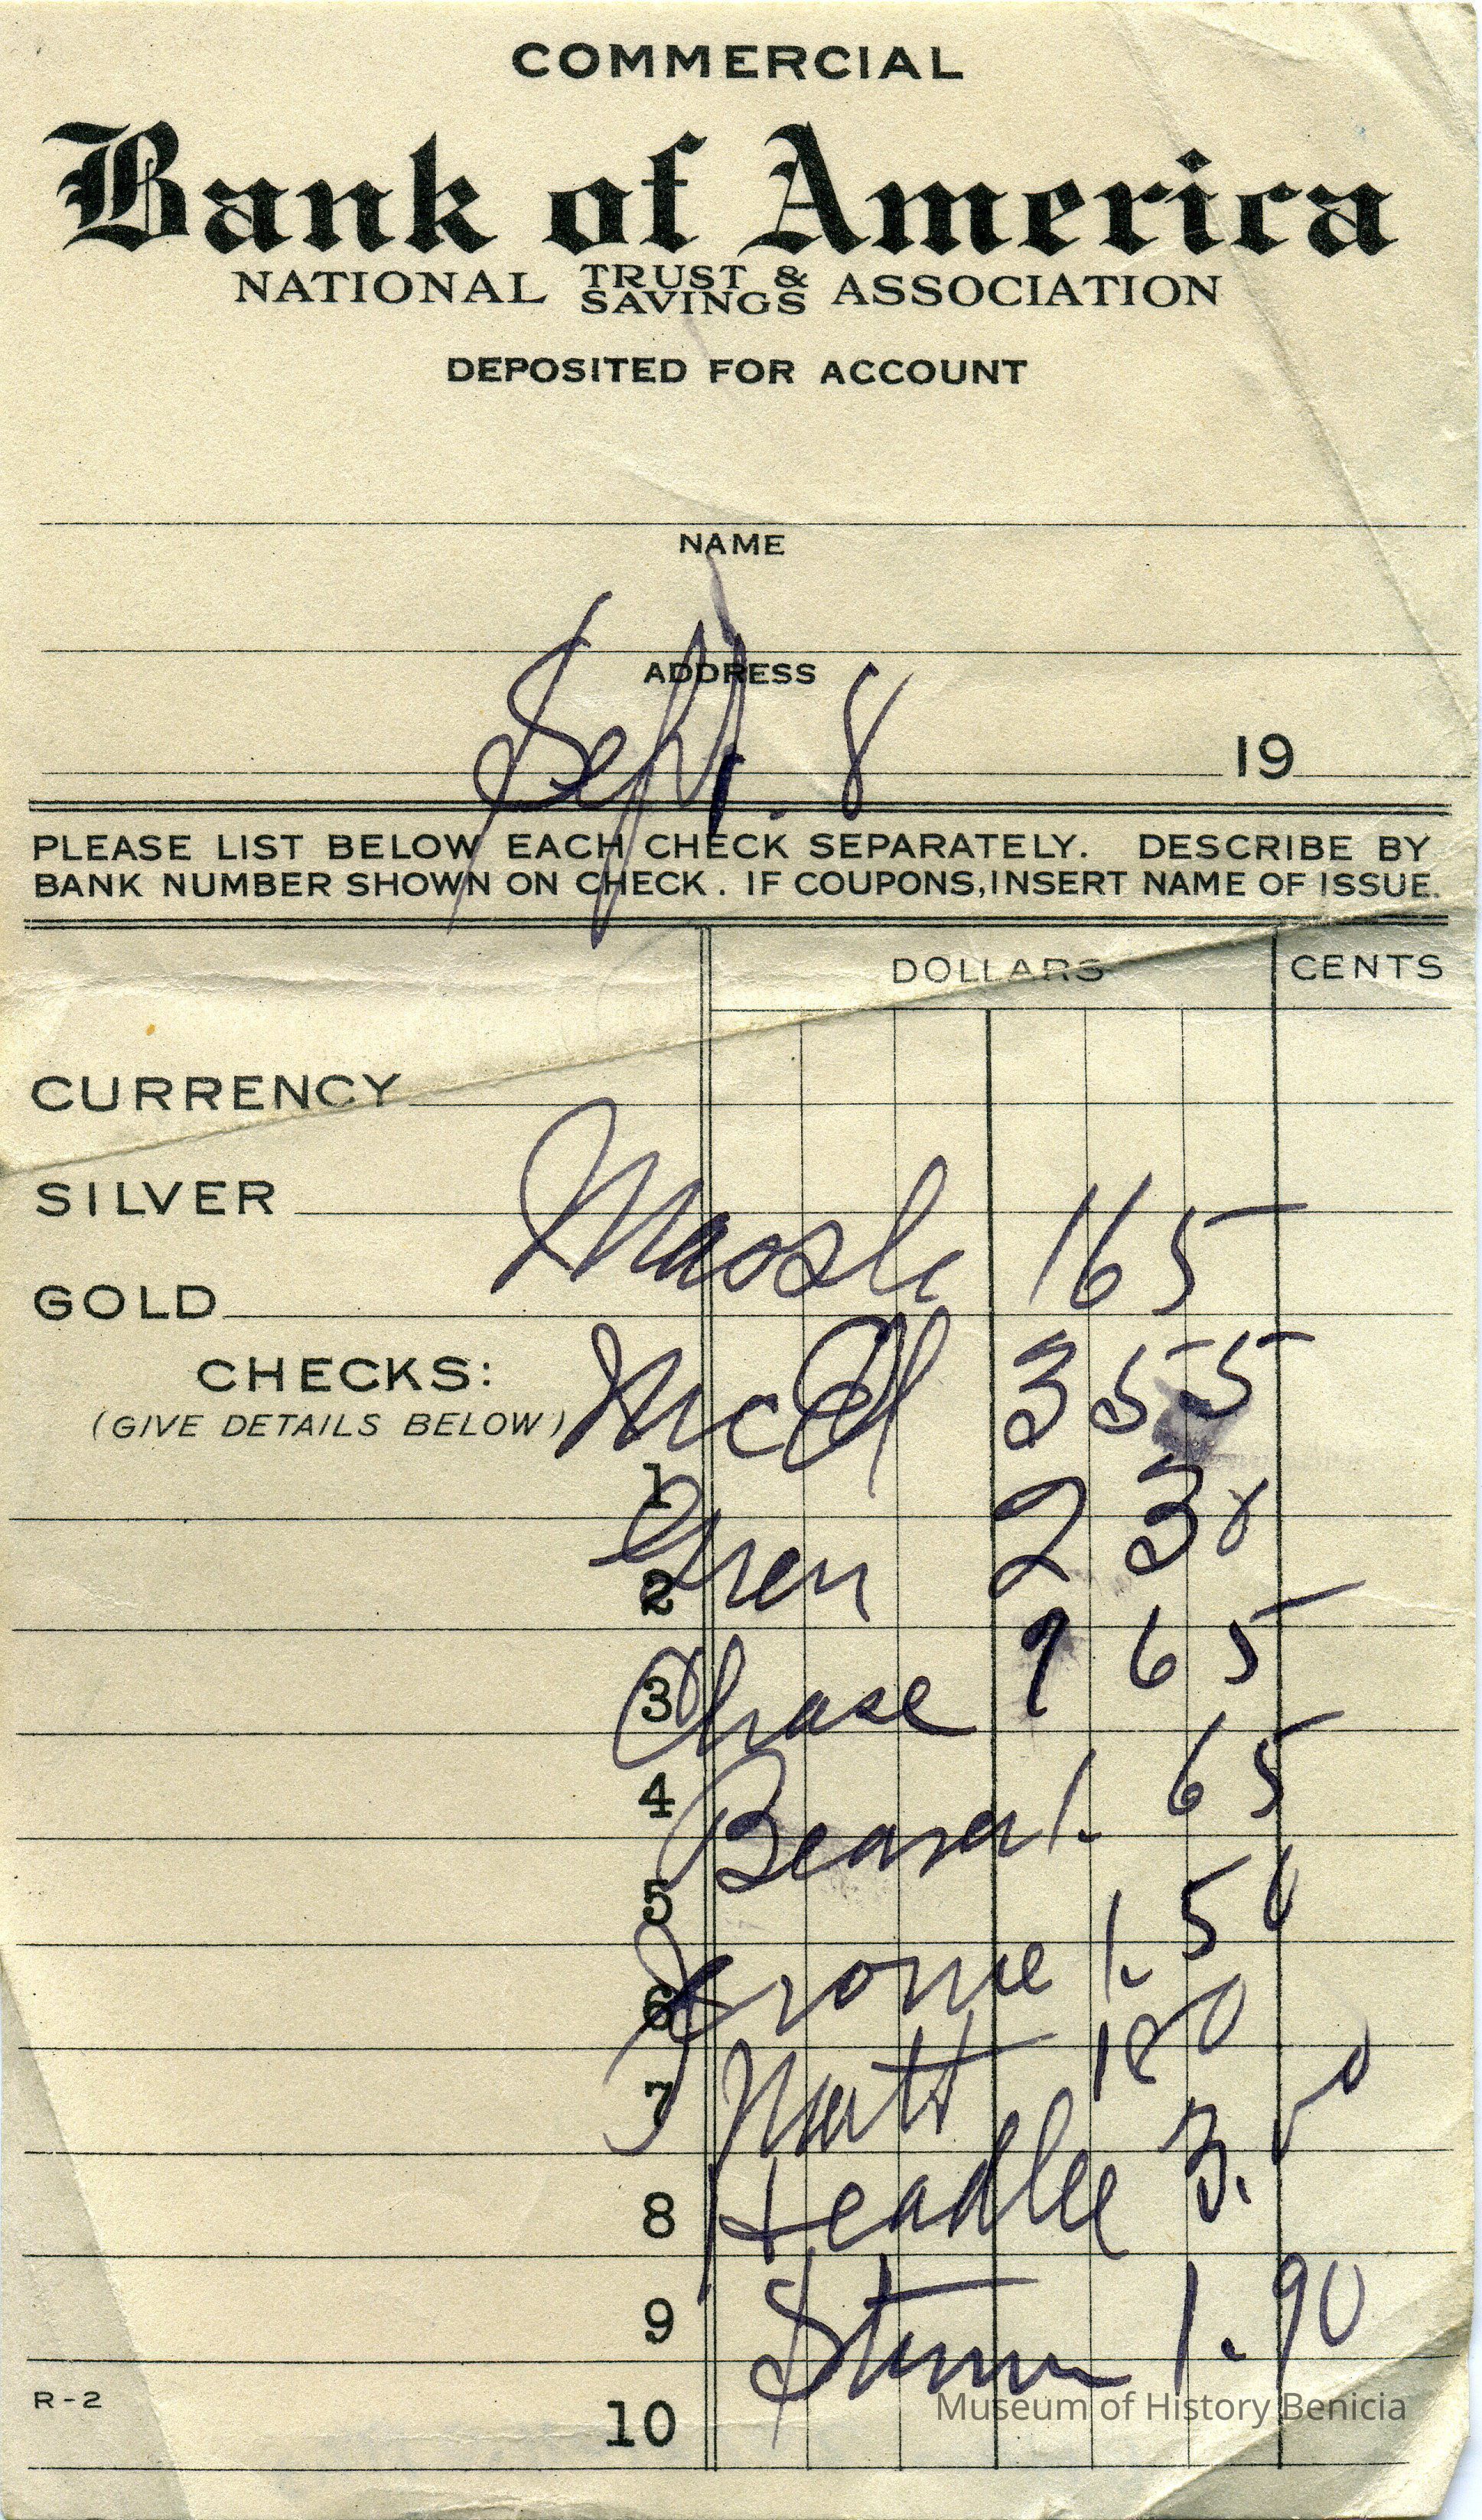 COMMERCIAL
Bank of America
NATIONAL TRUST & SAVINGS ASSOCIATION
DEPOSITED FOR ACCOUNT
NAME
ADDRESS
Sept. 8 19
PLEASE LIST BELOW EACH CHECK SEPARATELY. DESCRIBE BY
BANK NUMBER SHOWN ON CHECK. IF COUPONS, INSERT NAME OF ISSUE.
DOLLARS CENTS
CURRENCY
SILVER
165
GOLD
CHECKS:
(GIVE DETAILS BELOW)
355
1
2 3
2
3 Chase 65
4
1. 65
5
Jerome 1. 50
6
7 Matt 180
8 Headlee 3.
9
1.90
R-2
10
Museum of History Benicia